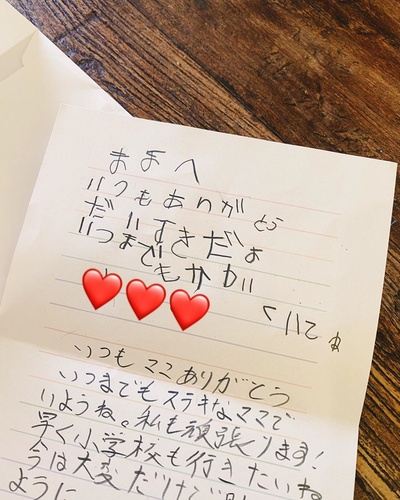 ままへ
いつもありがとう
だいすきだよ
いつまでもかわ
いくいてね
いつもママありがとう
いつまでもステキなママで
いようね。私も頑張ります!
早く小学校も行きたいね
今は大変だけど
ように